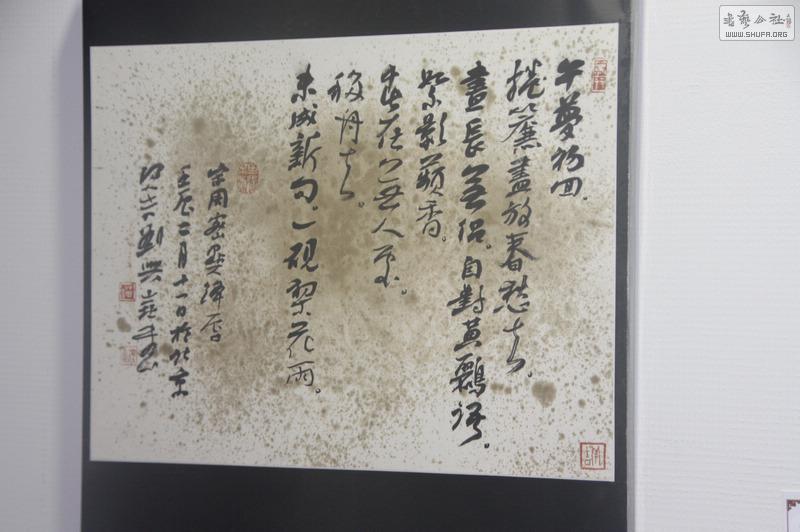 午夢初回。
捲簾盡放春愁去。
晝長無侶。自對黃鸝語。
絮影蘋香。
春在無人處。
移舟去。
未成新句。一硯梨花雨。
宋周密點絳唇
壬辰二月十一日於北京
書藝公社
WWW.SHUFA.ORG